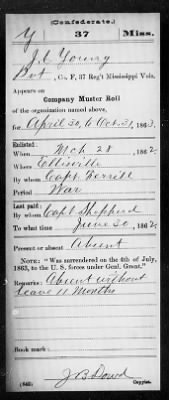 (Confederate.)
Y 37 Miss.
J. C. Young
Pvt, Co. F, 37 Reg't Mississippi Vols.
Appears on
Company Muster Roll
of the organization named above,
for April 30, to Oct. 31, 1863.
Enlisted:
When Mch 28, 1862.
Where Ellisville
By whom Capt. Terrill
Period War
Last paid:
By whom Capt Sheppard
To what time June 30, 1862.
Present or absent Absent
NOTE: "Was surrendered on the 4th of July, 1863, to the U. S. forces under Genl. Grant."
Remarks: Absent without
leave 11 months
Book mark:
(642) J B Dowd
Copyist.